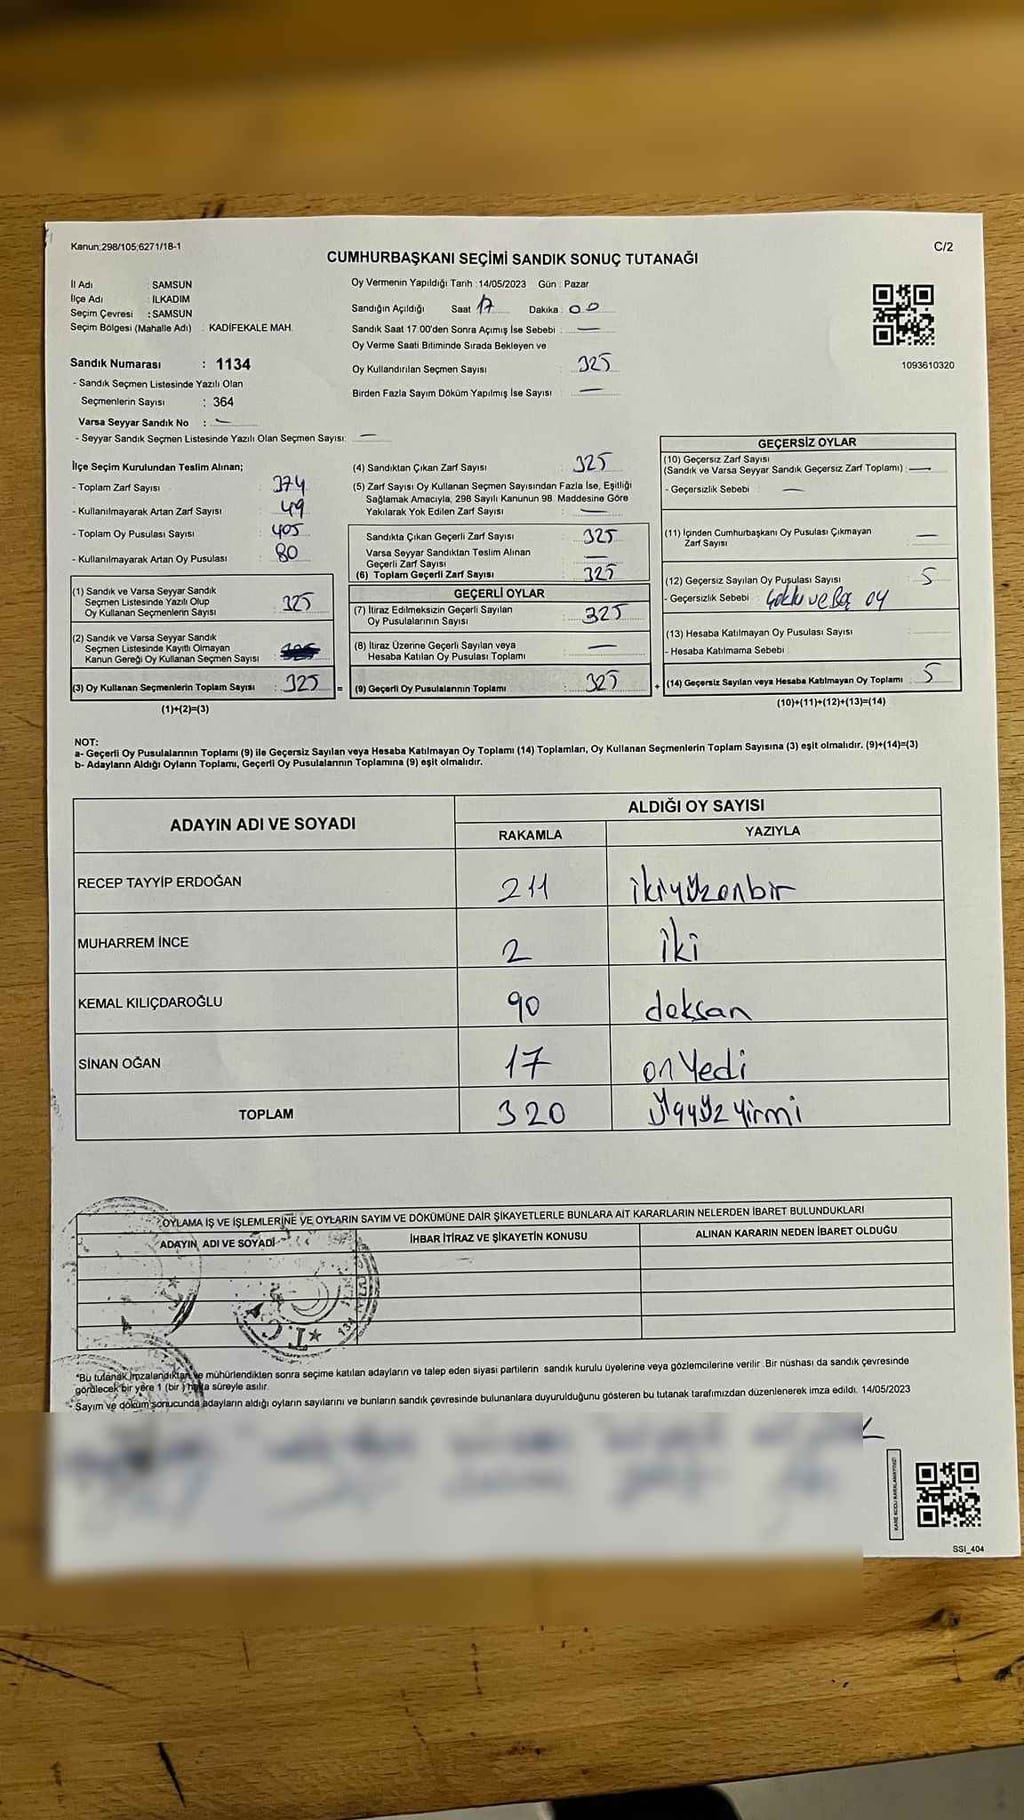 Kanun:298/105;6271/18-1
C/2
CUMHURBAŞKANI SEÇİMİ SANDIK SONUÇ TUTANAĞI
İl Adı : SAMSUN
İlçe Adı : İLKADIM
Seçim Çevresi : SAMSUN
Seçim Bölgesi (Mahalle Adı) : KADİFEKALE MAH.
Sandık Numarası : 1134
- Sandık Seçmen Listesinde Yazılı Olan
Seçmenlerin Sayısı : 364
Varsa Seyyar Sandık No : —
- Seyyar Sandık Seçmen Listesinde Yazılı Olan Seçmen Sayısı: —
Oy Vermenin Yapıldığı Tarih :14/05/2023 Gün : Pazar
Sandığın Açıldığı Saat 17 Dakika : 00
Sandık Saat 17:00'den Sonra Açımış İse Sebebi : —
Oy Verme Saati Bitiminde Sırada Bekleyen ve
Oy Kullandırılan Seçmen Sayısı : 325
Birden Fazla Sayım Döküm Yapılmış İse Sayısı : —
1093610320
İlçe Seçim Kurulundan Teslim Alınan;
- Toplam Zarf Sayısı : 374
- Kullanılmayarak Artan Zarf Sayısı : 49
- Toplam Oy Pusulası Sayısı : 405
- Kullanılmayarak Artan Oy Pusulası : 80
(1) Sandık ve Varsa Seyyar Sandık
Seçmen Listesinde Yazılı Olup
Oy Kullanan Seçmenlerin Sayısı : 325
(2) Sandık ve Varsa Seyyar Sandık
Seçmen Listesinde Kayıtlı Olmayan
Kanun Gereği Oy Kullanan Seçmen Sayısı :
(3) Oy Kullanan Seçmenlerin Toplam Sayısı : 325 =
(1)+(2)=(3)
(4) Sandıktan Çıkan Zarf Sayısı : 325
(5) Zarf Sayısı Oy Kullanan Seçmen Sayısından Fazla İse, Eşitliği
Sağlamak Amacıyla, 298 Sayılı Kanunun 98. Maddesine Göre
Yakılarak Yok Edilen Zarf Sayısı : —
Sandıkta Çıkan Geçerli Zarf Sayısı : 325
Varsa Seyyar Sandıktan Teslim Alınan
Geçerli Zarf Sayısı : —
(6) Toplam Geçerli Zarf Sayısı : 325
GEÇERLİ OYLAR
(7) İtiraz Edilmeksizin Geçerli Sayılan
Oy Pusulalarının Sayısı : 325
(8) İtiraz Üzerine Geçerli Sayılan veya
Hesaba Katılan Oy Pusulası Toplamı : —
(9) Geçerli Oy Pusulalarının Toplamı : 325 +
GEÇERSİZ OYLAR
(10) Geçersiz Zarf Sayısı
(Sandık ve Varsa Seyyar Sandık Geçersiz Zarf Toplamı) : —
- Geçersizlik Sebebi : —
(11) İçinden Cumhurbaşkanı Oy Pusulası Çıkmayan
Zarf Sayısı : —
(12) Geçersiz Sayılan Oy Pusulası Sayısı : 5
- Geçersizlik Sebebi : Çoklu ve Boş oy
(13) Hesaba Katılmayan Oy Pusulası Sayısı :
- Hesaba Katılmama Sebebi :
(14) Geçersiz Sayılan veya Hesaba Katılmayan Oy Toplamı : 5
(10)+(11)+(12)+(13)=(14)
NOT:
a- Geçerli Oy Pusulalarının Toplamı (9) ile Geçersiz Sayılan veya Hesaba Katılmayan Oy Toplamı (14) Toplamları, Oy Kullanan Seçmenlerin Toplam Sayısına (3) eşit olmalıdır. (9)+(14)=(3)
b- Adayların Aldığı Oyların Toplamı, Geçerli Oy Pusulalarının Toplamına (9) eşit olmalıdır.
ADAYIN ADI VE SOYADI
ALDIĞI OY SAYISI
RAKAMLA YAZIYLA
RECEP TAYYİP ERDOĞAN 211 ikiyüzonbir
MUHARREM İNCE 2 iki
KEMAL KILIÇDAROĞLU 90 doksan
SİNAN OĞAN 17 onyedi
TOPLAM 320 üçyüzyirmi
OYLAMA İŞ VE İŞLEMLERİNE VE OYLARIN SAYIM VE DÖKÜMÜNE DAİR ŞİKAYETLERLE BUNLARA AİT KARARLARIN NELERDEN İBARET BULUNDUKLARI
ADAYIN ADI VE SOYADI İHBAR İTİRAZ VE ŞİKAYETİN KONUSU ALINAN KARARIN NEDEN İBARET OLDUĞU
T.C.
134
*Bu tutanak imzalandıktan ve mühürlendikten sonra seçime katılan adayların ve talep eden siyasi partilerin sandık kurulu üyelerine veya gözlemcilerine verilir. Bir nüshası da sandık çevresinde
görülecek bir yere 1 (bir) hafta süreyle asılır.
* Sayım ve döküm sonucunda adayların aldığı oyların sayılarını ve bunların sandık çevresinde bulunanlara duyurulduğunu gösteren bu tutanak tarafımızdan düzenlenerek imza edildi. 14/05/2023
KARE KODU KARALAMAYINIZ!
SSI_404